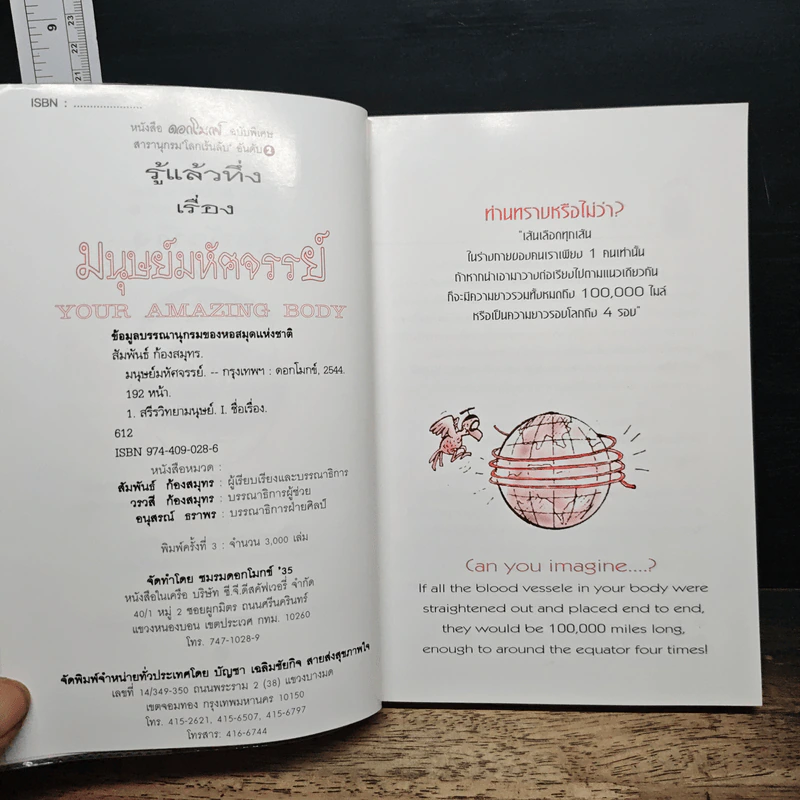 9
23
22
21
ISBN : .....................
หนังสือ ดอกโมกข์ ฉบับพิเศษ
สารานุกรม"โลกเร้นลับ" อันดับ 2
รู้แล้วทึ่ง
เรื่อง
มนุษย์มหัศจรรย์
YOUR AMAZING BODY
ข้อมูลบรรณานุกรมของหอสมุดแห่งชาติ
สัมพันธ์ ก้องสมุทร.
มนุษย์มหัศจรรย์. -- กรุงเทพฯ : ดอกโมกข์, 2544.
192 หน้า.
1. สรีรวิทยามนุษย์. I. ชื่อเรื่อง.
612
ISBN 974-409-028-6
หนังสือหมวด :
สัมพันธ์ ก้องสมุทร : ผู้เรียบเรียงและบรรณาธิการ
วรวสี ก้องสมุทร : บรรณาธิการผู้ช่วย
อนุสรณ์ ธราพร : บรรณาธิการฝ่ายศิลป์
พิมพ์ครั้งที่ 3 : จำนวน 3,000 เล่ม
จัดทำโดย ชมรมดอกโมกข์ '35
หนังสือในเครือ บริษัท ซี.จี.ดีสคัฟเวอรี่ จำกัด
40/1 หมู่ 2 ซอยผูกมิตร ถนนศรีนครินทร์
แขวงหนองบอน เขตประเวศ กทม. 10260
โทร. 747-1028-9
จัดพิมพ์จำหน่ายทั่วประเทศโดย บัญชา เฉลิมชัยกิจ สายส่งสุขภาพใจ
เลขที่ 14/349-350 ถนนพระราม 2 (38) แขวงบางมด
เขตจอมทอง กรุงเทพมหานคร 10150
โทร. 415-2621, 415-6507, 415-6797
โทรสาร: 416-6744
ท่านทราบหรือไม่ว่า?
"เส้นเลือดทุกเส้น
ในร่างกายของคนเราเพียง 1 คนเท่านั้น
ถ้าหากนำเอามาวางต่อเรียงไปตามแนวเดียวกัน
ก็จะมีความยาวรวมทั้งหมดถึง 100,000 ไมล์
หรือเป็นความยาวรอบโลกถึง 4 รอบ"
Can you imagine....?
If all the blood vessele in your body were
straightened out and placed end to end,
they would be 100,000 miles long,
enough to around the equator four times!